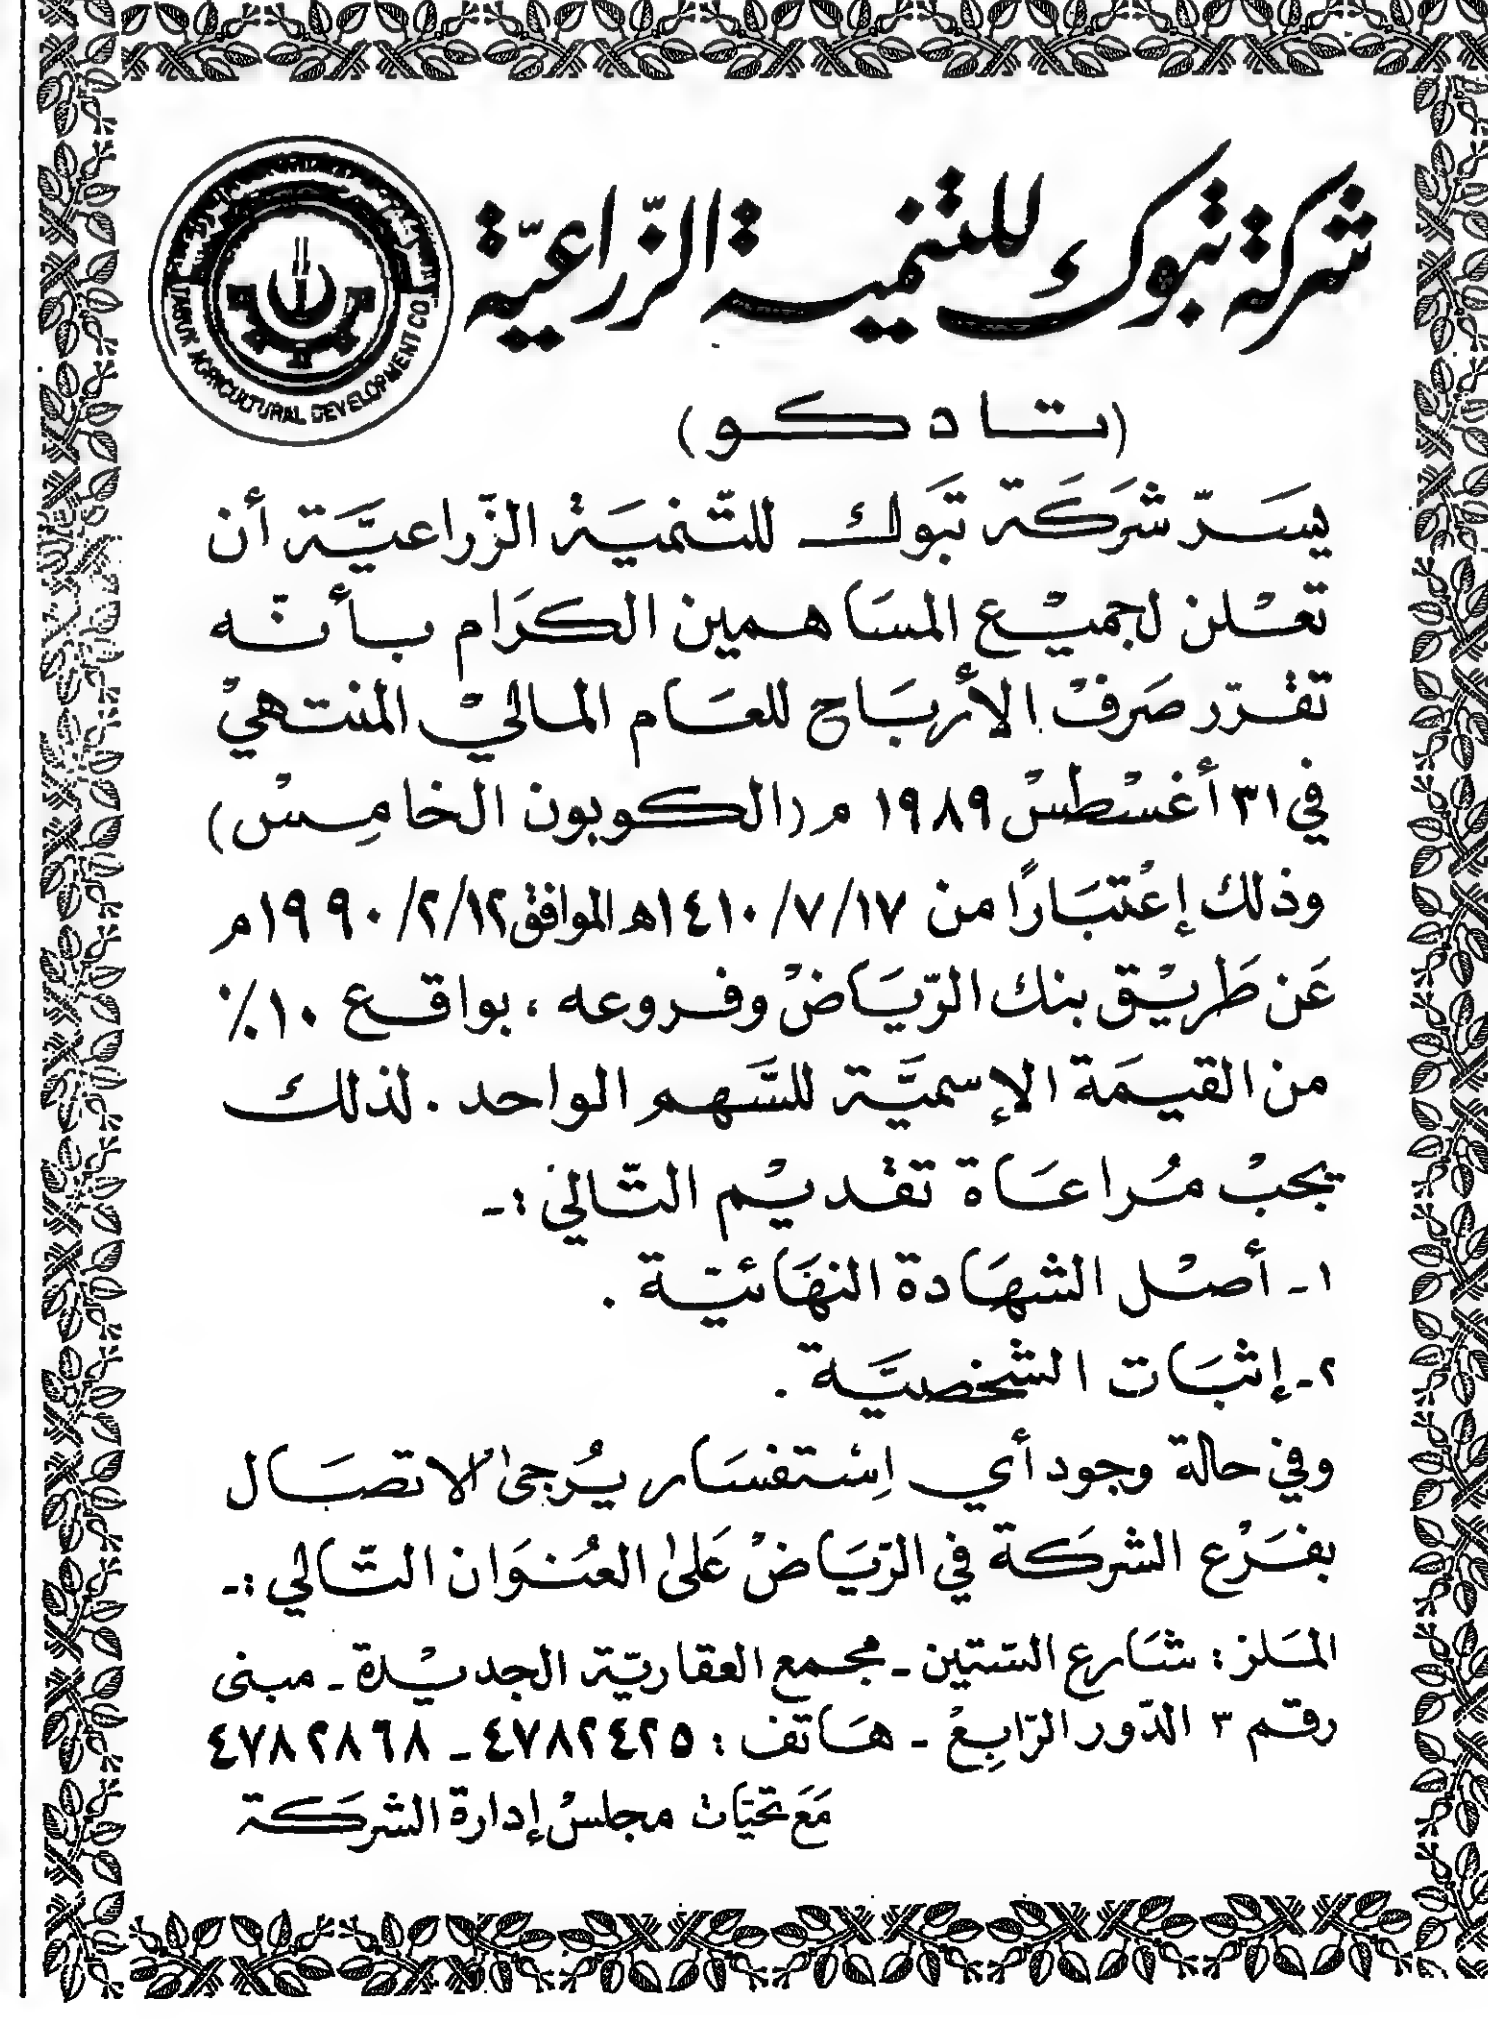 شركة تبوك للتنمية الزّراعيّة
TABUK AGRICULTURAL DEVELOPMENT CO
(تادكو)
يسَرّ شرَكَة تَبوك للتّنميَة الزّراعيَّة أن
تعْلن لجميْع المسَاهمين الكرَام بأنّه
تقْرّر صَرفْ الأربَاح للعَام المالي المنتهيْ
في ٣١ أغسْطسْ ١٩٨٩ م (الكوبون الخامِسْ)
وذلك إعْتبَارًا من ١٤١٠/٧/١٧هـ الموافق ١٩٩٠/٢/١٢م
عَن طَريْق بنك الرّيَاضْ وفروعه ، بواقع ١٠٪
من القيمَة الإسميَّة للسَّهم الواحد . لذلك
يجبْ مُراعَاة تقْديْم التّالي :ـ
١ ـ أصْل الشهَادة النهَائيّة .
٢ـ إثبَات الشخصيَّة .
وفي حالة وجود أي اِسْتفسَار يُرجىٰ الاتصَال
بفَرْع الشركَة في الرّيَاضْ عَلىٰ العُنوَان التّالي :ـ
الملَز : شَارع الستين ـ مجمع العقاريّة الجديْدة ـ مبنى
رقم ٣ الدّور الرّابِعْ ـ هَاتف : ٤٧٨٢٤٢٥ ـ ٤٧٨٢٨٦٨
مَعَ تحيَات مجلسْ إدارة الشركَة